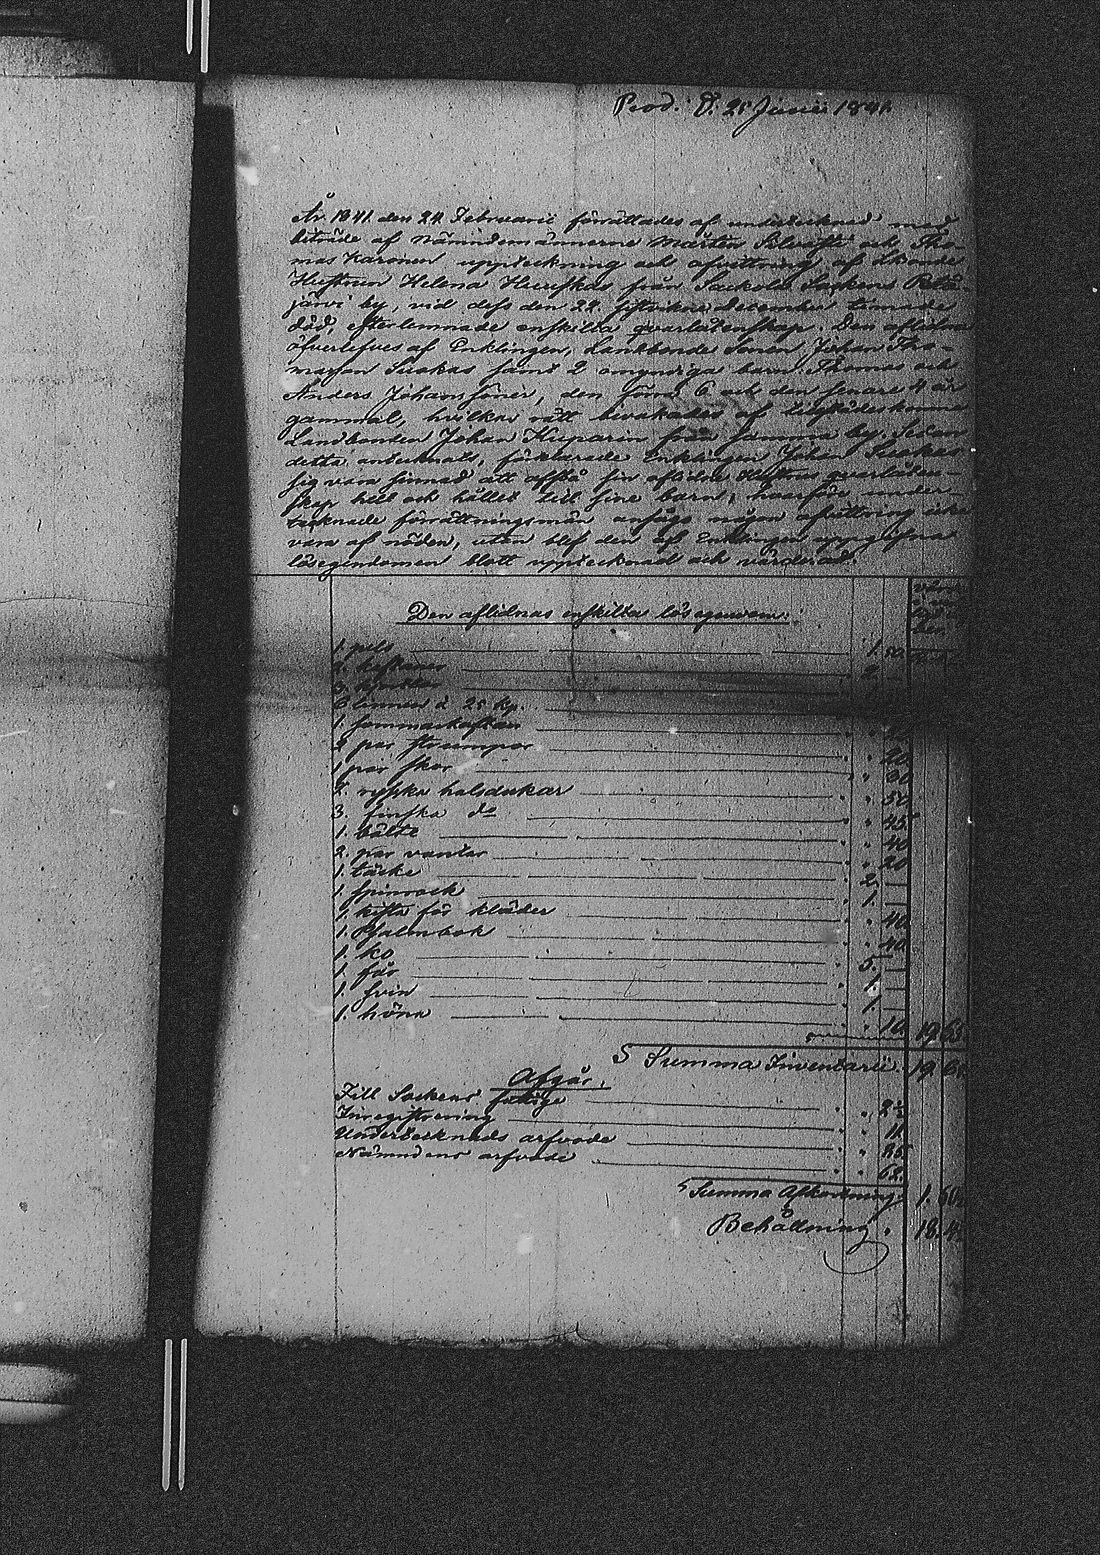 Prod. d. 25 Junii 1841.
År 1841 den 24 Februarii förrättades af undertecknad med
biträde af Nämndemännerne Mårten Silvast och Tho-
mas Karonen uppteckning och afvittring af
Hustrun Helena från Sackola Sockens Petä-
järvi by, vid dess den 22 sistvikne December timade
död, efterlemnade enskilta qvarlåtenskap. Den aflidna
öfverlefves af Enklingen, Landbonde Sonen Johan Tho-
masson Suokas samt 2 omyndiga barn Thomas och
Anders Johans söner, den förra 6 och den senare 4 år
gammal, hvilkas rätt bevakades af
Landbonden Johan Kuparin från samma by. Sedan
detta antecknats, förklarade Enklingen Johan Suokas
sig vara sinnad att afstå sin aflidna Hustrus qvarlåten-
skap helt och hållet till sine barn; hvarföre under-
tecknade förrättningsmän ansågo någon afvittring icke
vara af nöden, utan blef den af Enklingen uppgifna
lösegendomen blott upptecknad och värderad.
Den aflidnas enskilta lösegendom.
1. pels 1. 50.
2. 2.
3.
6 linnen à 25 kp.
1. sommarkaftan
2 par strumpor 20
1 par skor 60
2. ryska halsdukar 50
3. finska do 45
1. bälte 40
2. par vantar 20
1. täcke 2. —
1. spinrock 1. —
1. kista för kläder 40
1. Psalmbok 40
1. ko 5. —
1. får 1. —
1. svin 1. —
1. höna 10 19. 65
Summa Inventarii 19. 65
Afgår,
Till Sockens fattige 2½
Inregistrering 11
Undertecknads arfvode 85
Nämndens arfvode 62
Summa Afkortning 1. 60½
Behållning 18. 4